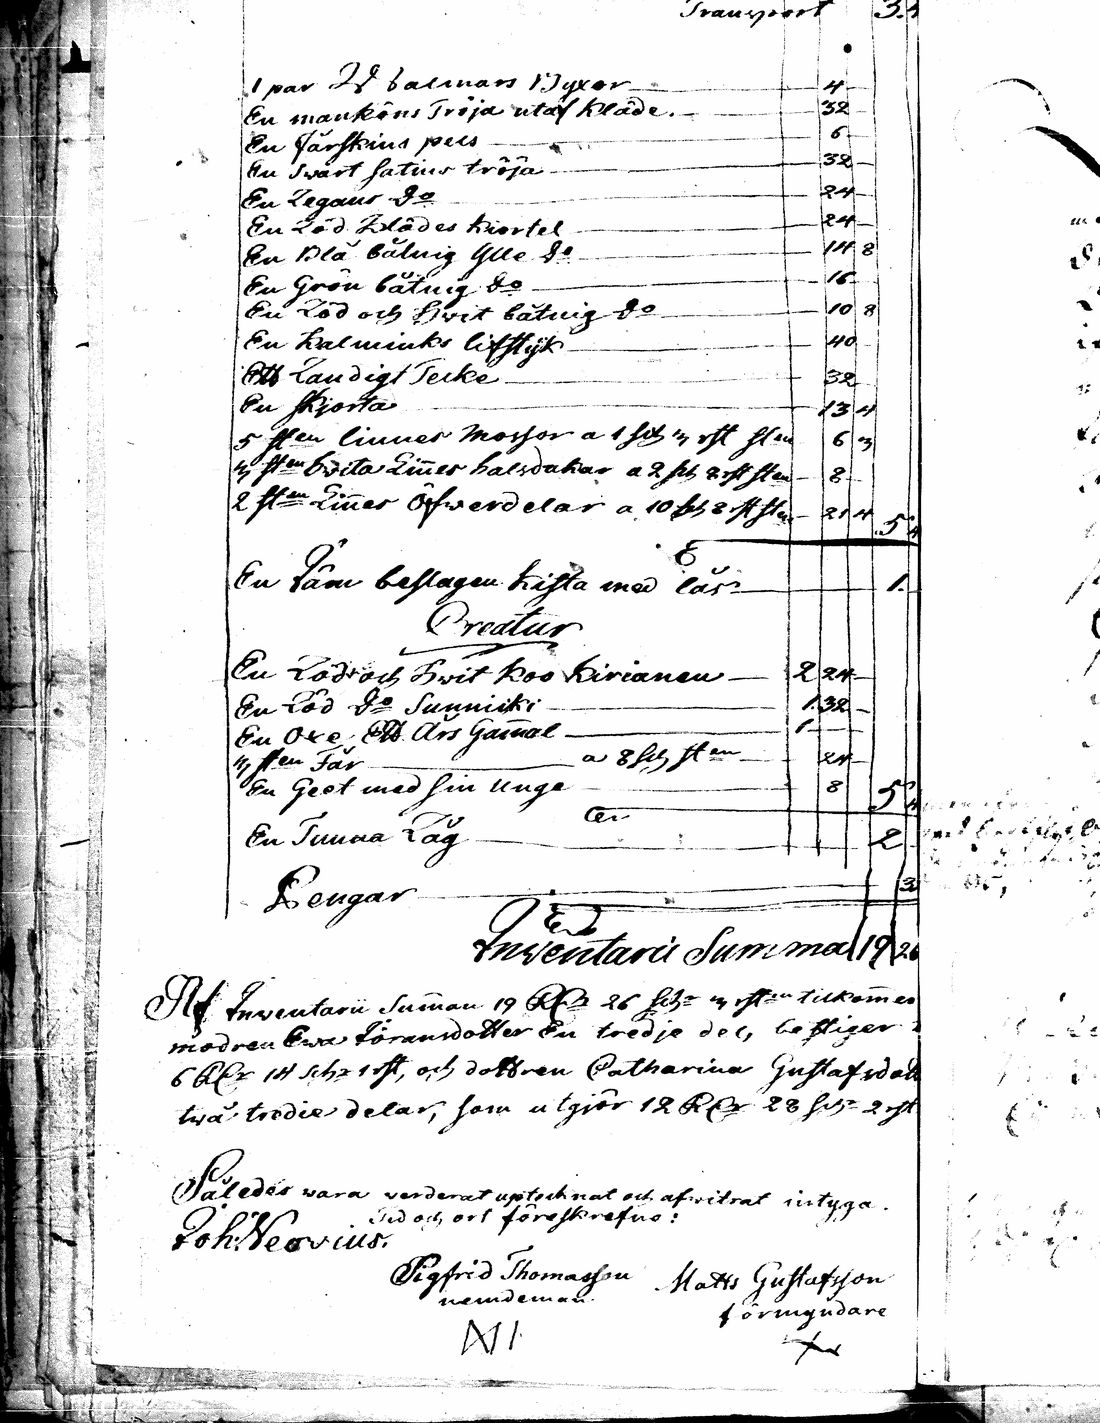 Transport 3.
1 par Walmars Byxor 4
En manköns Tröja utaf Kläde. 32
En fårskins pels 6
En Swart Satins tröja 32
En Zegans do 24
En Röd Klädes kiortel 24
En Blå båtnig Ylle do 14 8
En Grön båtnig do 16
En Röd och Hwit båtnig do 10 8
En Kalminks lifstyk 40
Ett Randigt Tecke 32
En Skjorta 13 4
5 sten linnes Mossor a 1 sch 3 rst sten 6 3
3 sten hwita Linnes halsdukar a 2 sch 8 rst sten 8
2 sten Linnes Öfwerdelar a 10 sch 8 rst sten 21 4 5
En Järn beslagen Kista med lås 1.
Creatur
En Röd och Hwit Koo Kirianen 2 24
En Röd do Sunniki 1 32
En Oxe Ett Års Gamal 1
3 sten Får a 8 sch sten 24
En Geet med sin Unge 8 5
En Tunna Råg 2
Pengar 3
Inventarii Summa 19 26
Af Inventarii Summan 19 RDr 26 sch 3 rsten tilkommer
modren Ewa Jöransdotter En tredje del, bestiger
6 RDr 14 sch 1 rst, och dottren Catharina Gustafsdott
twå tredie delar, som utgjör 12 RDr 28 sch 2 rst
Således wara verderat uptecknat och afwitrat intyga.
Tid och ort föreskrefne:
Joh: Neovius.
Sigfrid Thomasson Matts Gustafsson
nemdeman. förmyndare